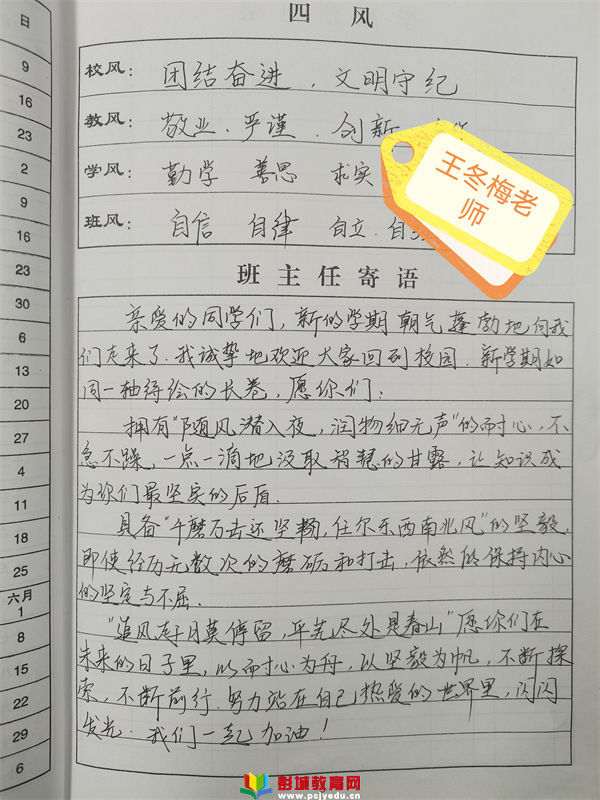 四 风
校风： 团结奋进，文明守纪
教风： 敬业、严谨、创新
学风： 勤学 善思 求实
班风： 自信 自律 自立、自
王冬梅老
师
班主任寄语
亲爱的同学们，新的学期朝气蓬勃地向我
们走来了，我诚挚地欢迎大家回到校园．新学期如
同一轴待绘的长卷，愿你们：
拥有“随风潜入夜，润物细无声”的耐心，不
急不躁，一点一滴地汲取智慧的甘露，让知识成
为你们最坚实的后盾．
具备“千磨万击还坚韧，任尔东西南北风”的坚毅，
即使经历无数次的磨砺和打击，依然能保持内心
的坚定与不屈．
“追风赶月莫停留，平芜尽处是春山”愿你们在
未来的日子里，以耐心为舟，以坚毅为帆，不断探
索，不断前行．努力站在自己热爱的世界里，闪闪
发光．我们一起加油！
日
9
16
23
2
9
16
23
30
6
13
20
27
4
11
18
25
六月
1
8
15
22
29
6
彭城教育网
www.pcjyedu.cn